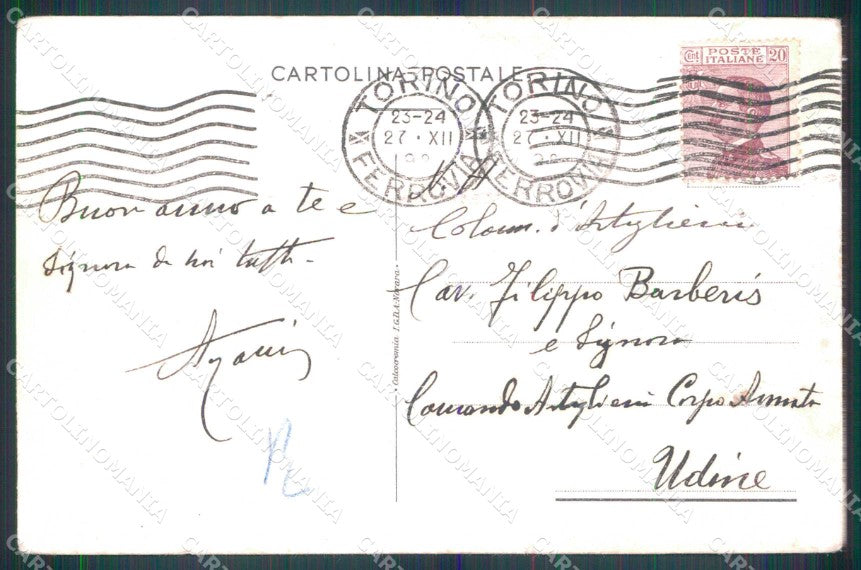 CARTOLINA POSTALE
Cent POSTE ITALIANE 20
TORINO
23-24
27 · XII
FERROVIA
TORINO
23-24
27 · XII
FERROVIA
Buon anno a te e
Signora da noi tutti -
Colonn. d'Artiglieria
Cav. Filippo Barberis
e Signora
Comando Artiglieria Corpo Armata
Udine
Calocromia I.G.D.A. Novara
CARTOLINOMANIA